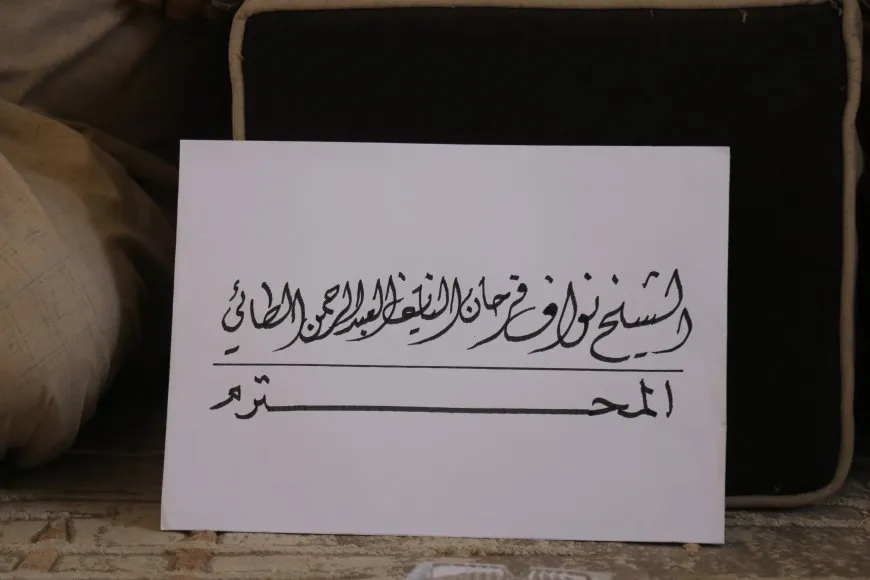 الشيخ نواف فرحان النايف العبدالرحمن الطائي
المحترم